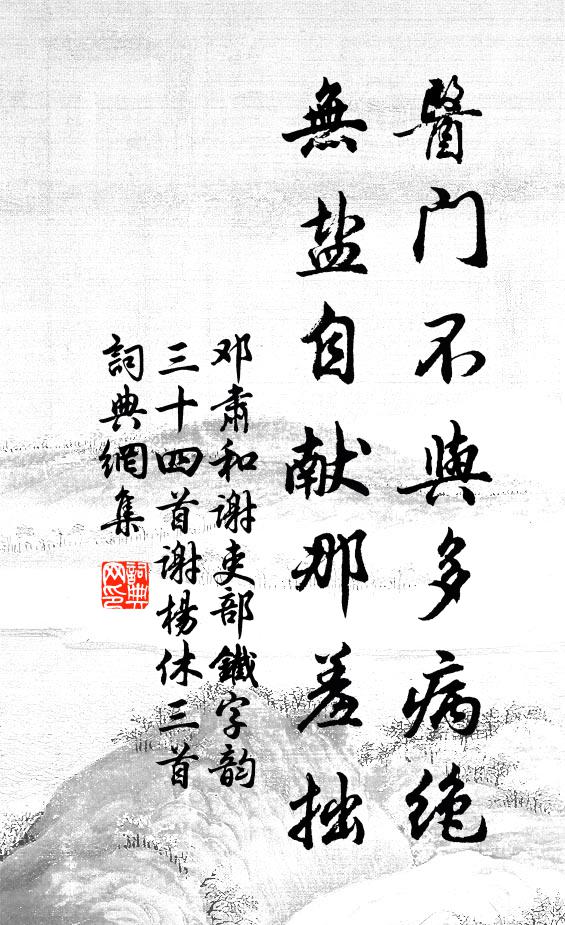 醫门不與多病絶
無盐自献那羞拙
邓肅和谢吏部鐵字韵
三十四首谢楊休三首
詞典網集
詞典
网印